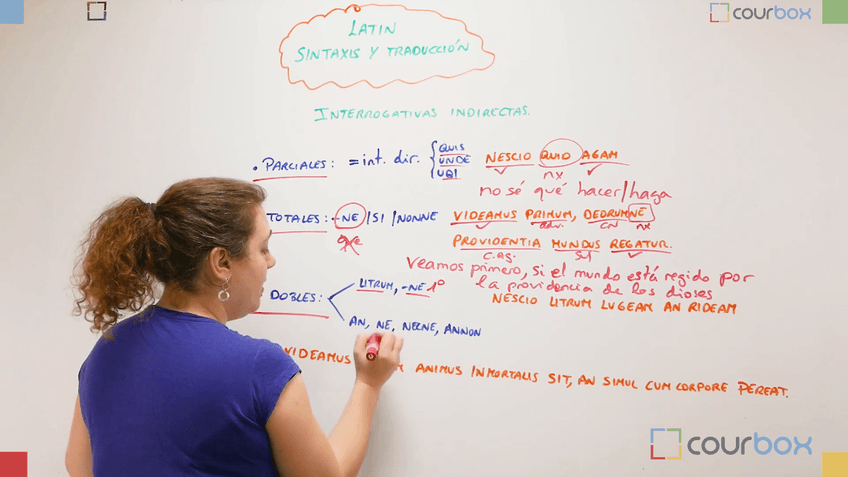 courbox
LATIN
SINTAXIS Y TRADUCCIÓN
INTERROGATIVAS INDIRECTAS.
• PARCIALES: = int. dir. { QUIS
UNDE
UBI
NESCIO QUID AGAM
nx
no sé qué hacer/haga
TOTALES: -NE /SI /NONNE
que
VIDEAMUS PRIMUM, DEORUMNE
adv. CN nx
PROVIDENTIA MUNDUS REGATUR.
C.Ag. SUJ
Veamos primero, si el mundo está regido por
la providencia de los dioses
DOBLES:
UTRUM, -NE 1º
AN, NE, NECNE, ANNON
NESCIO UTRUM LUGEAM AN RIDEAM
VIDEAMUS ANIMUS INMORTALIS SIT, AN SIMUL CUM CORPORE PEREAT.
courbox